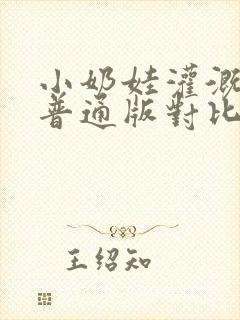 小奶娃灌溉
普通版對比
王绍知